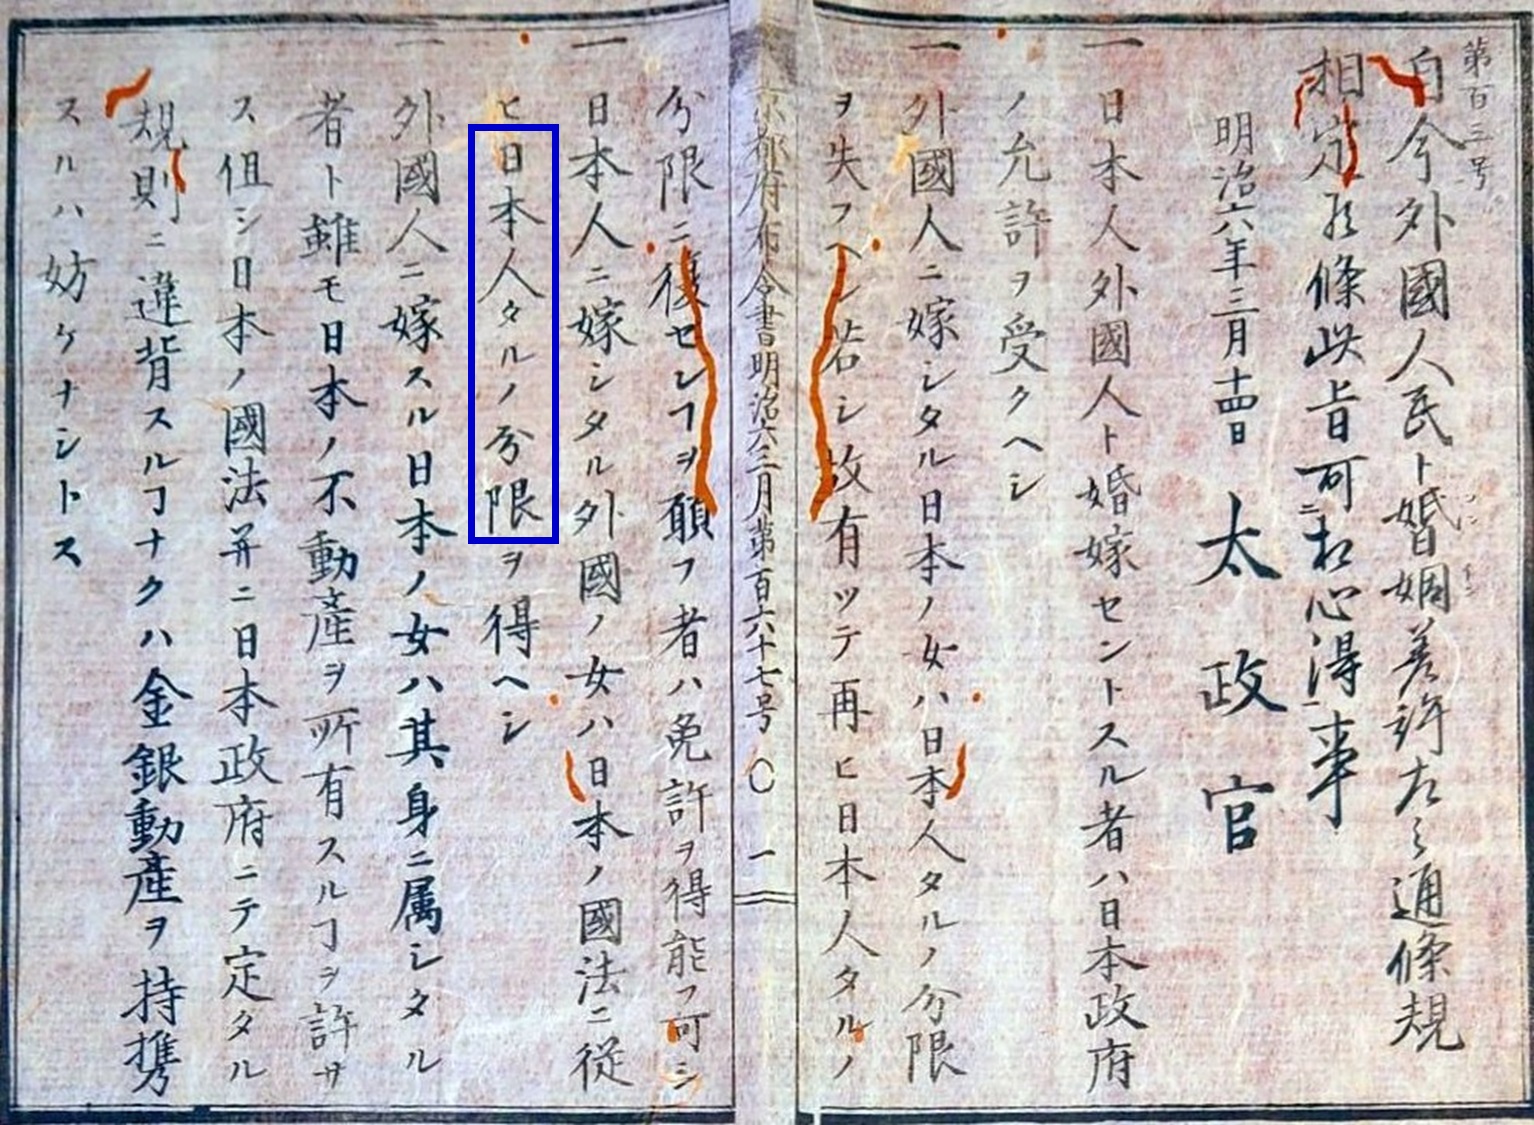 第百三号
自今外國人民ト婚姻差許左之通條規
相定候條此旨可相心得事
明治六年三月十四日
太政官
一
日本人外國人ト婚嫁セントスル者ハ日本政府
ノ允許ヲ受クヘシ
一
外國人ニ嫁シタル日本ノ女ハ日本人タルノ分限
ヲ失フヘシ若シ故有ツテ再ヒ日本人タルノ
京都府布令書明治六三月第百六十七号〇一
分限ニ復センヿヲ願フ者ハ免許ヲ得能フ可シ
一
日本人ニ嫁シタル外國ノ女ハ日本ノ國法ニ従
ヒ日本人タルノ分限ヲ得ヘシ
一
外國人ニ嫁スル日本ノ女ハ其身ニ属シタル
者ト雖モ日本ノ不動産ヲ所有スルヿヲ許サ
ス伹シ日本ノ國法并ニ日本政府ニテ定タル
規則ニ違背スルヿナクハ金銀動産ヲ持携
スルハ妨ケナシトス